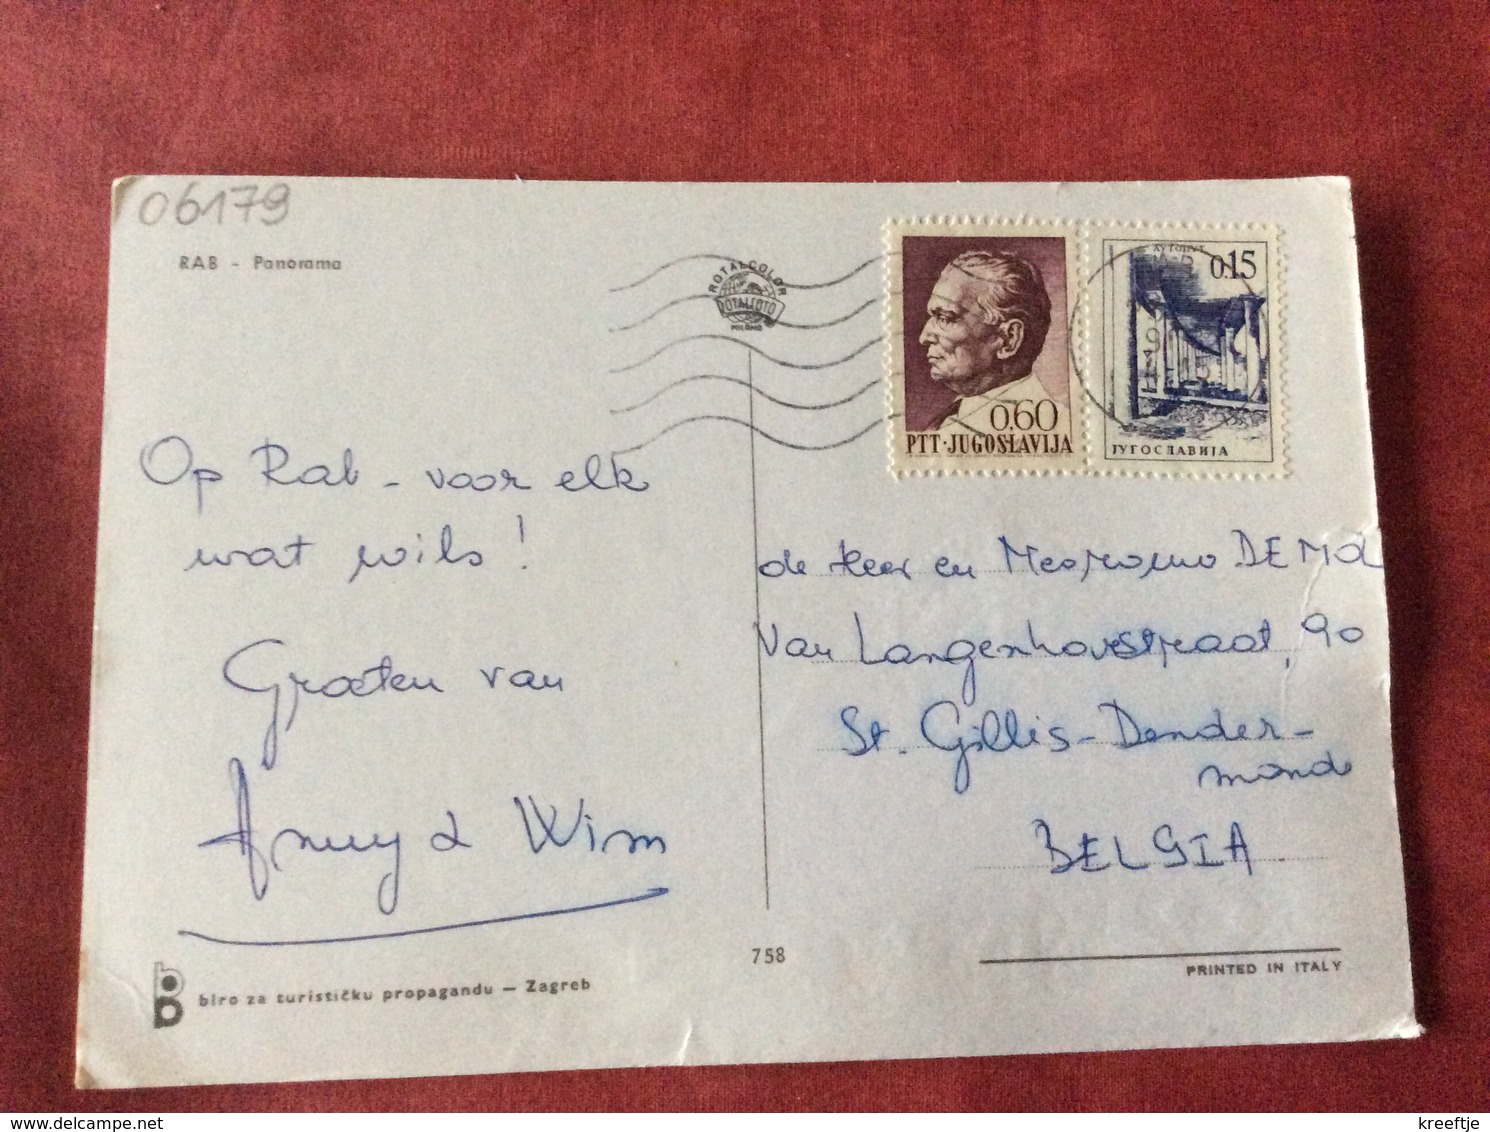 06179
RAB - Panorama
ROTALCOLOR
ROTALFOTO
MILANO
0.60
PTT·JUGOSLAVIJA
0.15
ЈУГОСЛАВИЈА
Op Rab - voor elk
wat wils!
Groeten van
& Wim
de Heer en
Van Langenhovestraat, 90
St. Gillis-Dender-
monde
BELGIA
758
PRINTED IN ITALY
biro za turističku propagandu — Zagreb
kreeftje